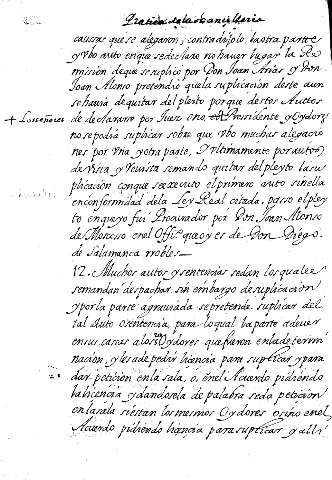 Pratica de la chançilleria
causas que se alegaron; contradijolo la otra parte
y Vbo auto en que se declaro no haver lugar la Re
mision de que se suplico por Don Joan Arias y Don
Joan Alonso pretendio que la suplicacion deste aun
se havia de quitar del pleyto porque destos Auttos
+ Los señores
de declararse por Juez eno Presidente y Oydores
no se podia suplicar sobre que Vbo muchas alegacio
nes por Vna y otra parte, Y vltimamente por autos
de Vista y Revista se mando quitar del pleyto la su
plicacion con que se executo el primero auto sin ella
en conformidad de la Ley Real citada, passo el pley
to en que yo fui Procurador por Don Joan Alonso
de Moscoso en el Offiº. que oy es de Don Diego
de Salamanca rrobles
12. Muchos autos y sentencias se dan los quales
se mandan despachar sin embargo de suplicacion
y por la parte agraviada se pretende suplicar del
tal Auto o sentencia, para lo qual la parte a de ver
en sus casas a los Oydores que fueron en la determi
nacion, y les a de pedir licencia para suplicar y para
dar peticion en la sala, o, en el Acuerdo pidiendo
la licencia y dandosela de palabra se da peticion
en la sala si estan los mesmos Oydores o sino en el
Acuerdo pidiendo licencia para suplicar y alli